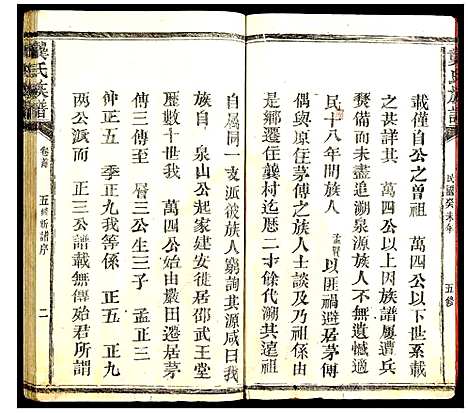 龔氏族譜
民國癸未年
五修
載僅自公之曾祖　萬四公以下世系載
之甚詳其　萬四公以上因族譜屢遭兵
燹備而未盡追溯泉源族人不無遺憾適
民十八年間族人　孟賢　以匪禍避居茅傅
偶與原居之茅傅之族人士談及乃祖係由
是鄉遷往龔村迄歷二十餘代溯其遠源
自屬同一支派彼族人窮詢其源咸曰我
族自　泉山公起家建安徙居邵武王堂
歷數十世我　萬公始由嚴田遷居茅
傅三傳至　層三公生三子　孟正三
仲正五　季正九我等係　正五　正九
兩公派而　正三公譜載無傳始君所謂
龔氏族譜
卷首
五修新譜序
二